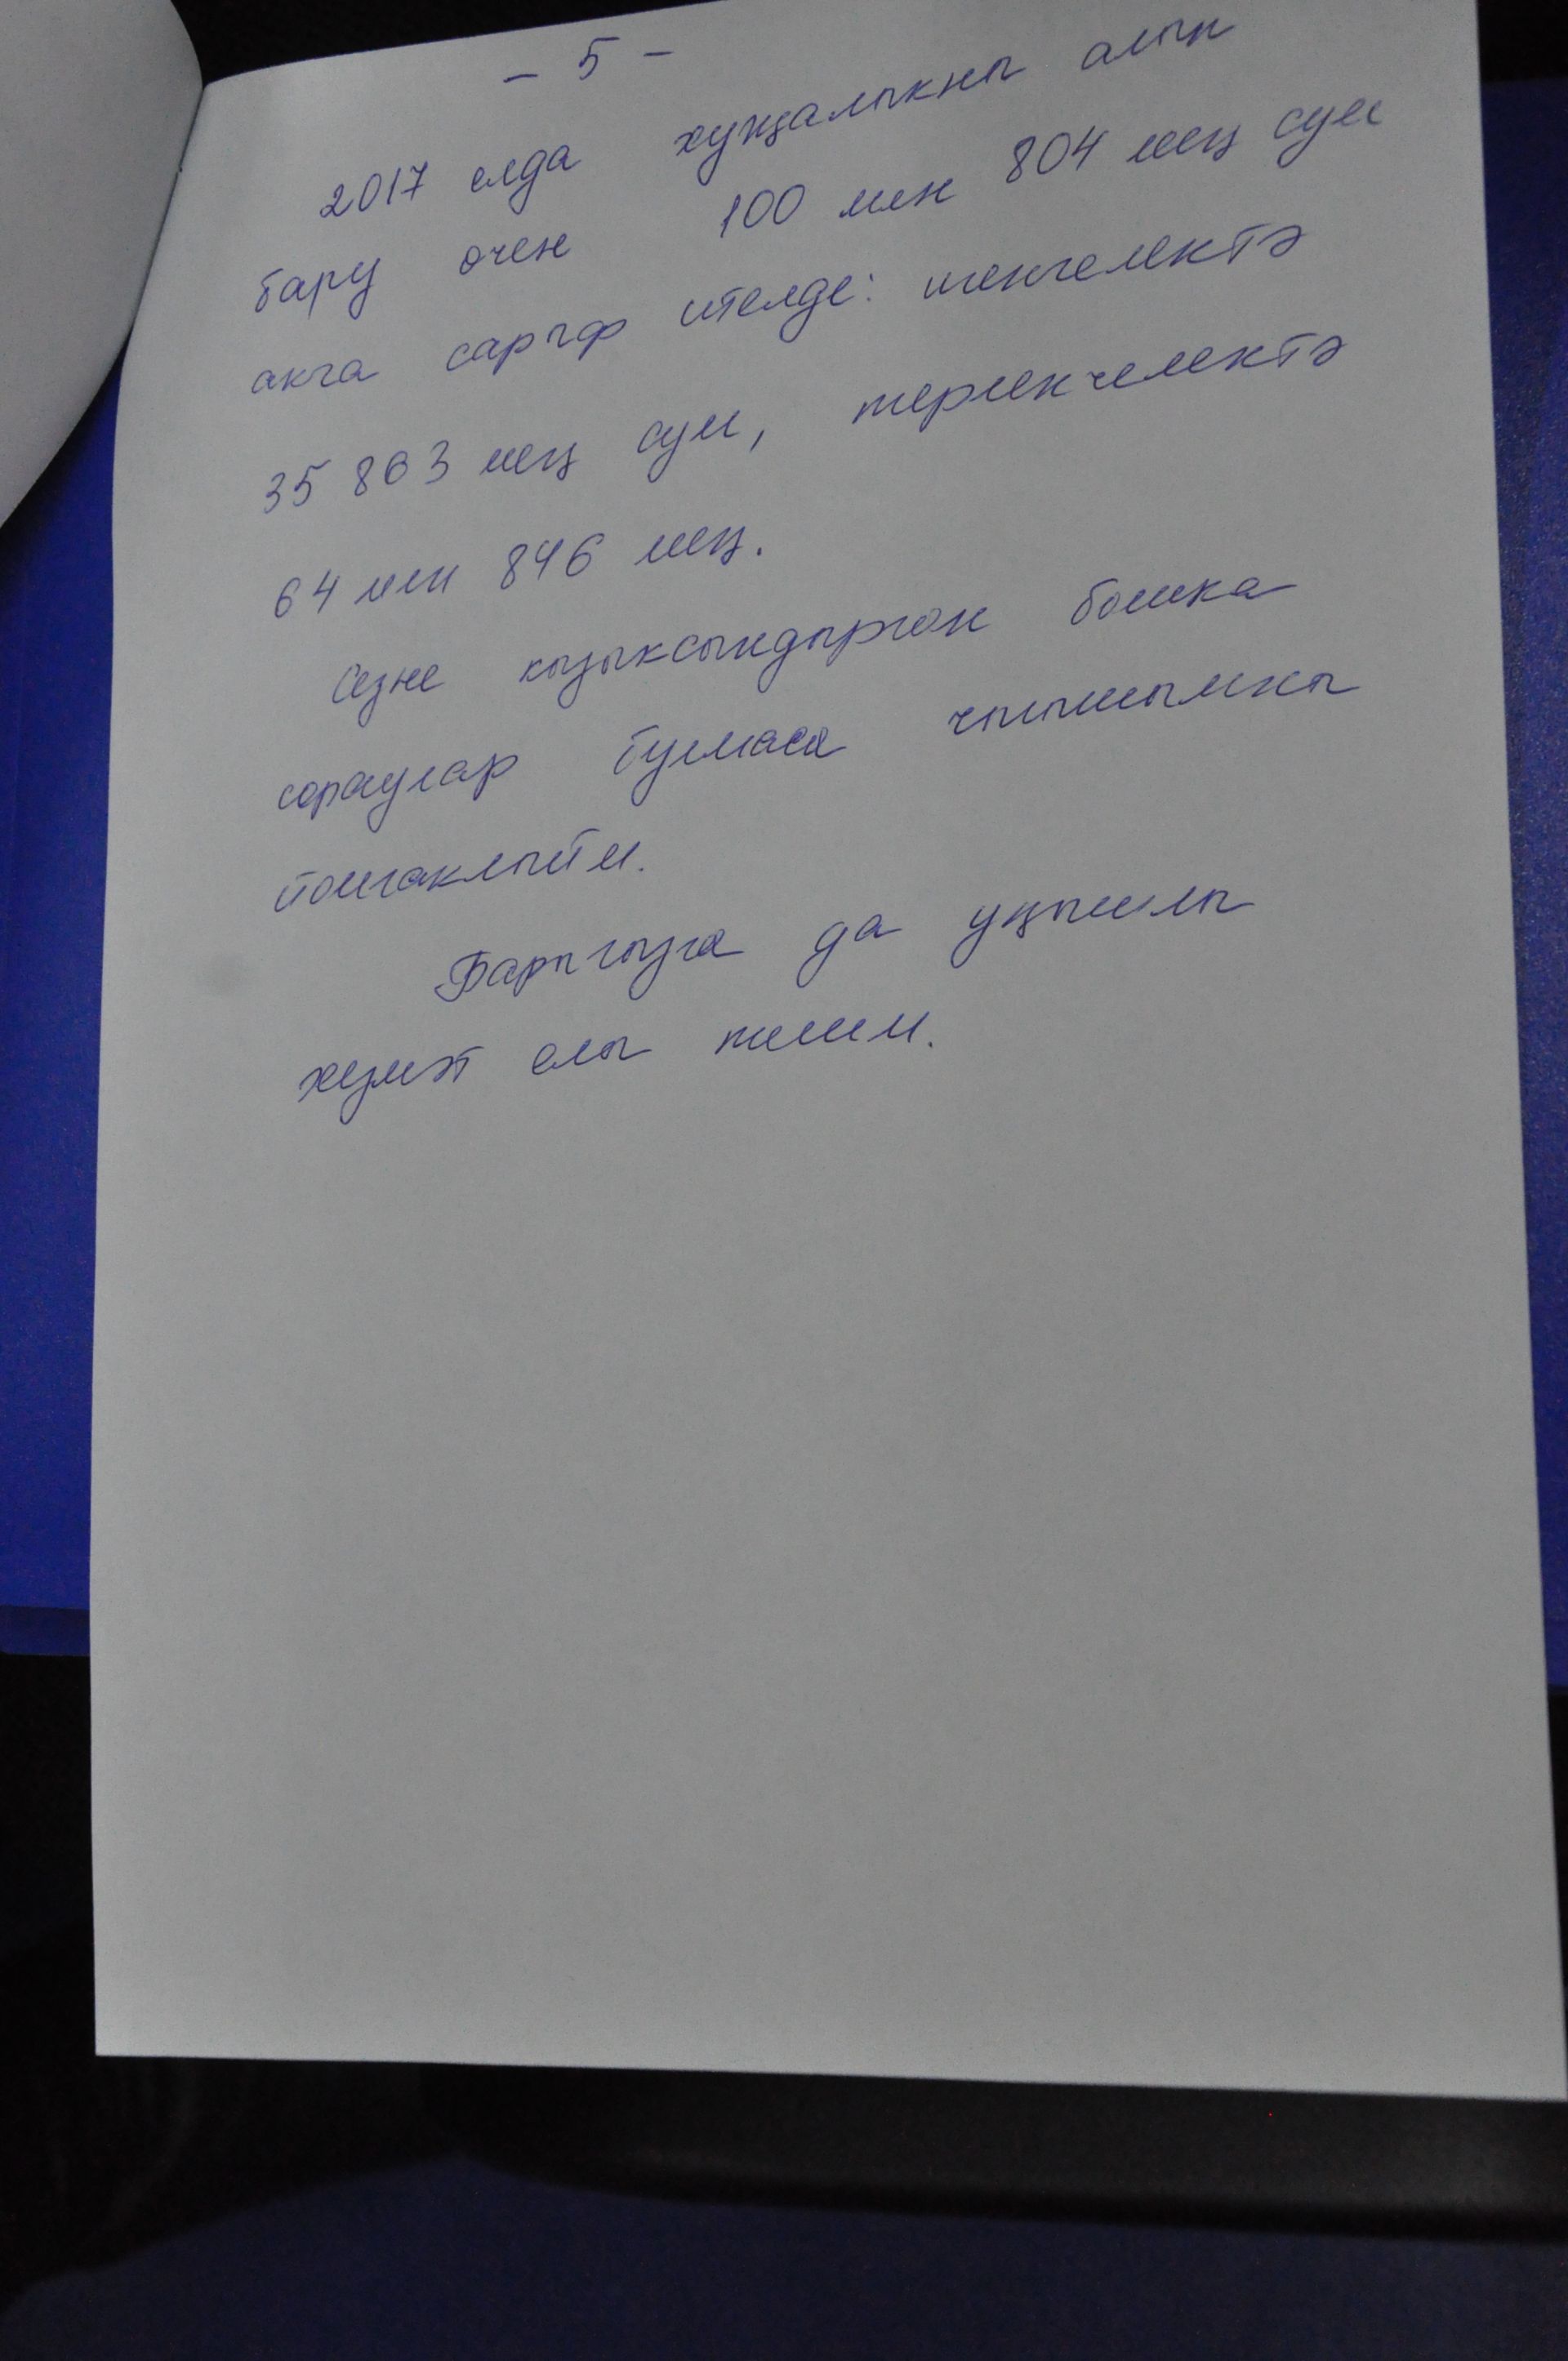 - 5 -
2017 елда хуҗалыкны алып
бару өчен 100 млн 804 мең сум
акча сарыф ителде: игенчелектә
35 863 мең сум, терлекчелектә
64 млн 846 мең.
Сезне кызыксындырган башка
сораулар булмаса чыгышымны
йомгаклыйм.
Барыгызга да уңышлы
хезмәт елы телим.